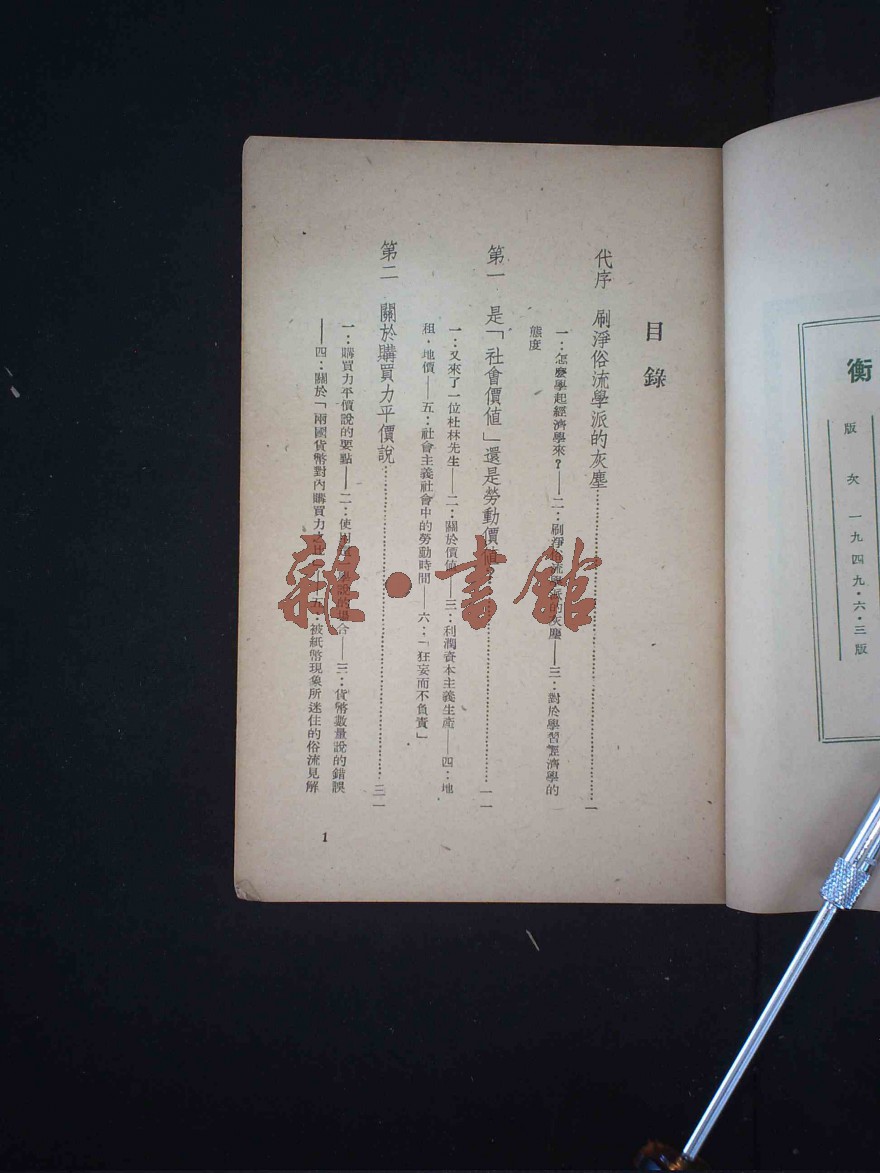 衡
版次 一九四九·六·三版
目錄
代序 刷淨俗流學派的灰塵……一
一：怎麼學起經濟學來？——二：刷淨俗流學派的灰塵——三：對於學習經濟學的
態度
第一 是「社會價值」還是勞動價值？……一一
一：又來了一位杜林先生——二：關於價值——三：利潤資本主義生產——四：地
租，地價——五：社會主義社會中的勞動時間——六：「狂妄而不負責」
第二 關於購買力平價說……三一
一：購買力平價說的要點——二：使用 說的場合——三：貨幣數量說的錯誤
——四：關於「兩國貨幣對內購買力之比」——五：被紙幣現象所迷住的俗流見解
1
雜·書館